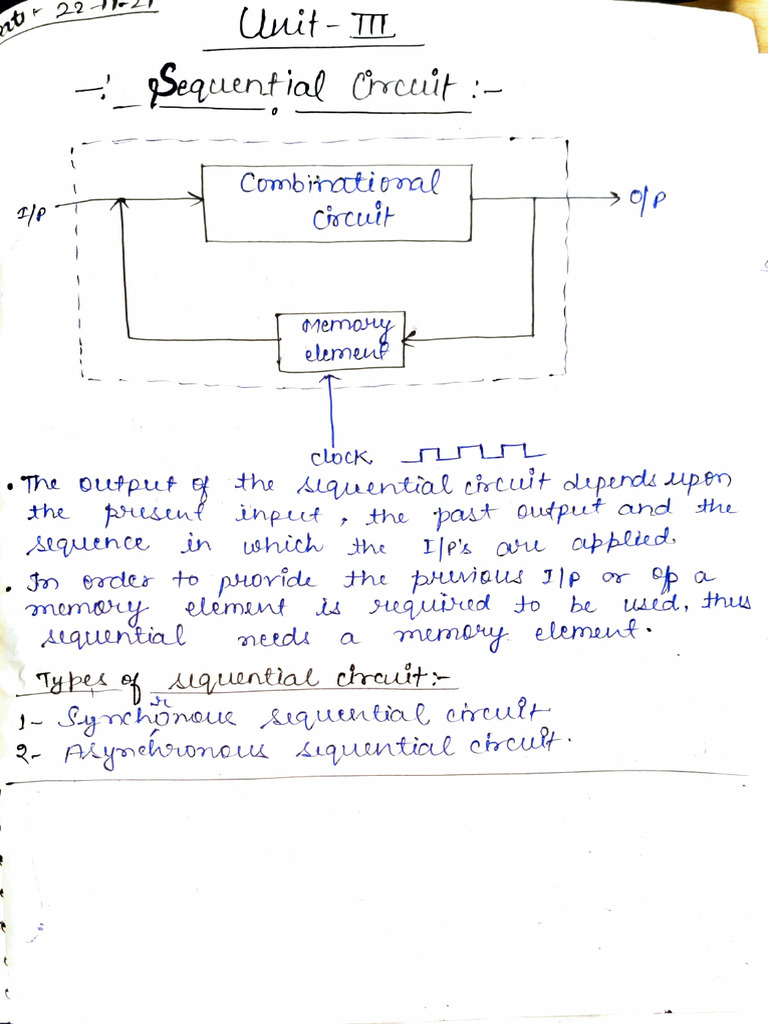 22-11-21
Unit - III
-: Sequential Circuit :-
I/P
Combinational
Circuit
O/P
Memory
element
clock
• The output of the sequential circuit depends upon
the present input, the past output and the
sequence in which the I/P's are applied.
• In order to provide the previous I/P or o/p a
memory element is required to be used, thus
sequential needs a memory element.
Types of sequential circuit:-
1- Synchronous sequential circuit
2- Asynchronous sequential circuit.